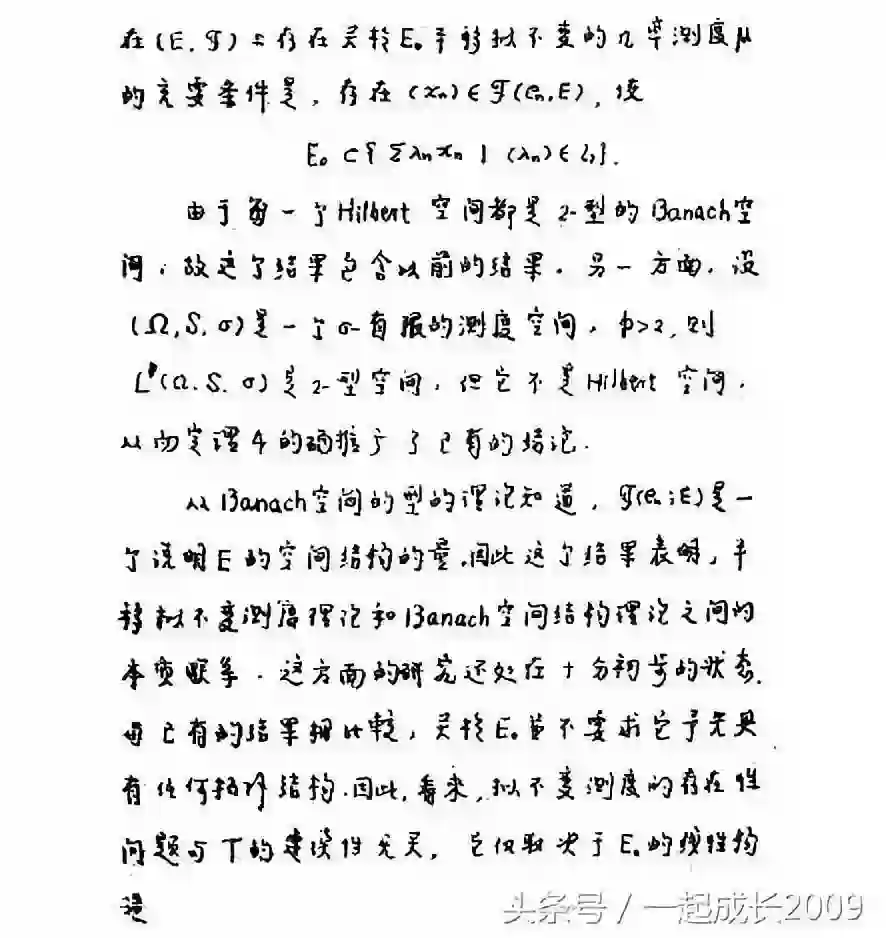 在(E,𝒯)上存在关于E₀平移拟不变的几率测度μ
的充要条件是,存在(xₙ)∈𝒯(eₙ,E),使
E₀⊂{Σλₙxₙ | (λₙ)∈l₂}.
由于每一个Hilbert 空间都是2-型的Banach空
间,故这个结果包含以前的结果。另一方面,设
(Ω,S,σ)是一个σ-有限的测度空间,p>2,则
Lᵖ(Ω.S.σ)是2-型空间,但它不是Hilbert 空间,
从而定理4的确推广了已有的结论.
从Banach空间的型的理论知道,𝒯(eₙ;E)是一
个说明E的空间结构的量.因此这个结果表明,平
移拟不变测度理论和Banach空间结构理论之间的
本质联系.这方面的研究还处在十分初步的状态.
与已有的结果相比较,关于E₀并不要求它予先具
有任何拓扑结构.因此,看来,拟不变测度的存在性
问题与T的连续性无关,它仅取决于E₀的线性构
造
头条号 / 一起成长2009